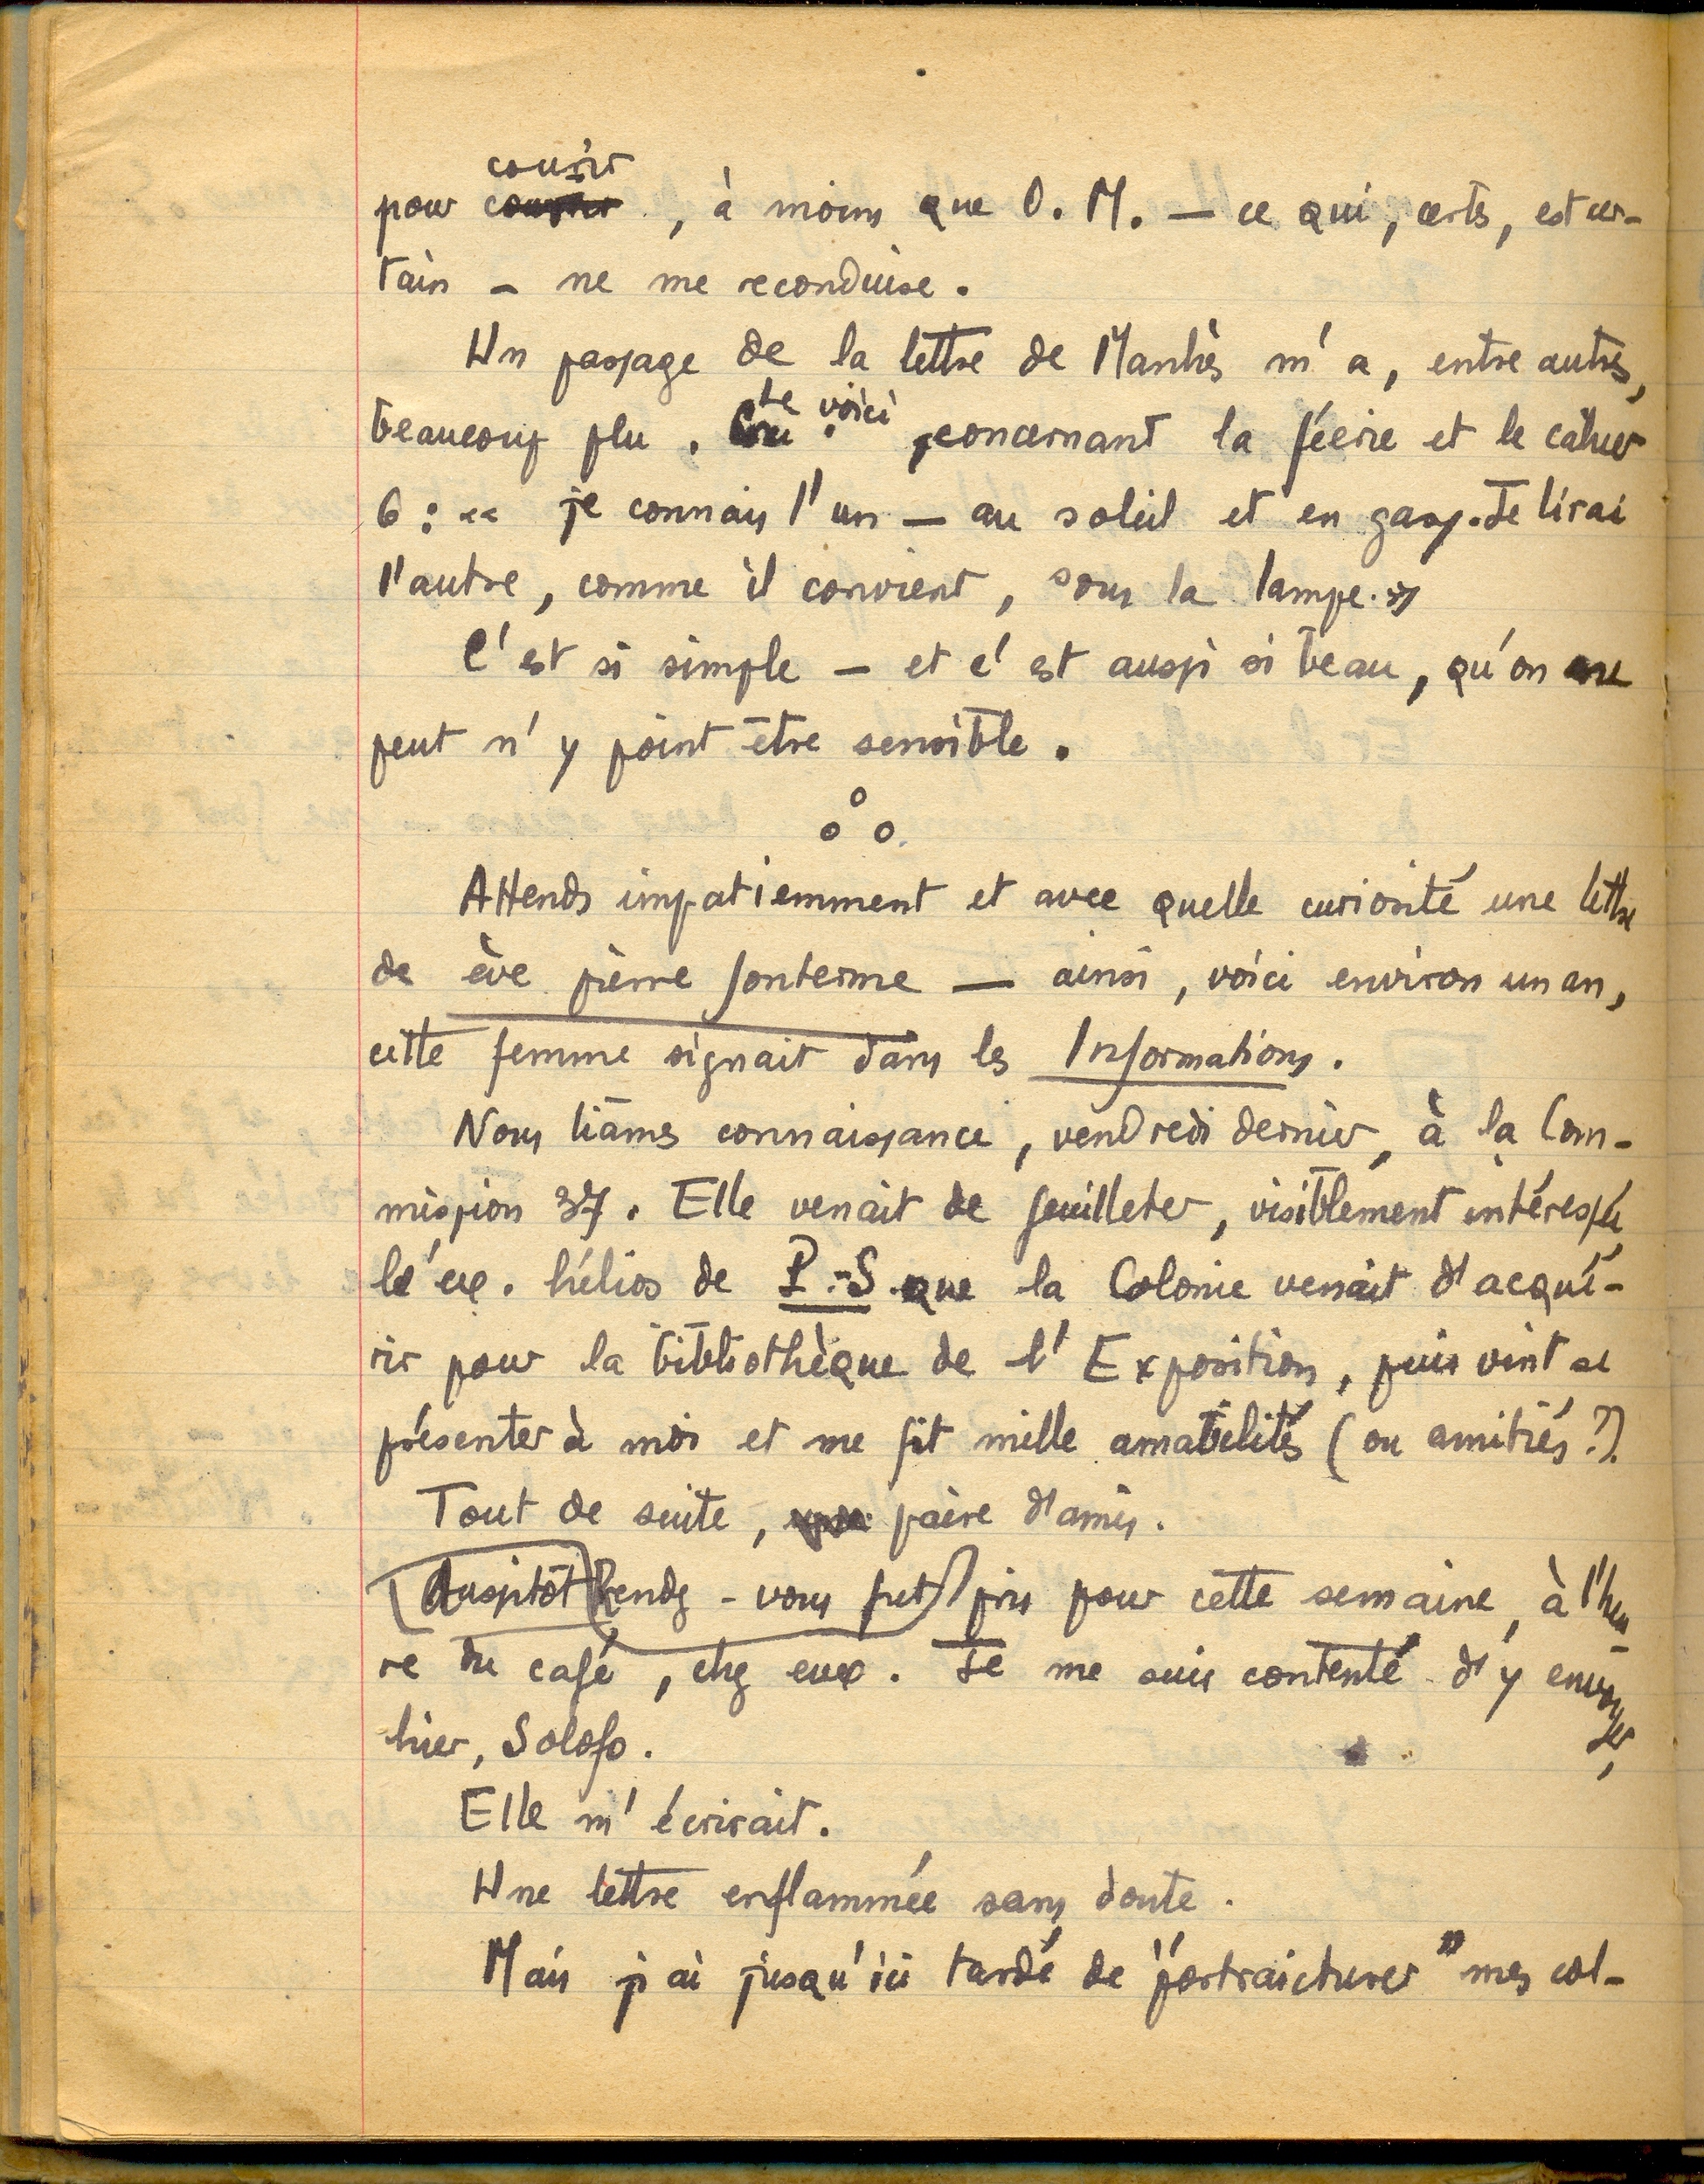 pour courir, à moins que O. M. — ce qui, certes, est cer-
tain — ne me reconduise.
Un passage de la lettre de Manhès m'a, entre autres,
beaucoup plu. Le voici concernant la féerie et le cahier
6 : « je connais l'un — au soleil et en gasy. Je lirai
l'autre, comme il convient, sous la lampe. »
C'est si simple — et c'est aussi si beau, qu'on ne
peut n'y point être sensible.
Attends impatiemment et avec quelle curiosité une lettre
de ève pierre fonterme — ainsi, voici environ un an,
cette femme signait dans les Informations.
Nous liâmes connaissance, vendredi dernier, à la Com-
mission 37. Elle venait de feuilleter, visiblement intéressée
le ex. hélios de P.-S que la Colonie venait d'acqué-
rir pour la bibliothèque de l'Exposition, puis vint se
présenter à moi et me fit mille amabilités (ou amitiés?).
Tout de suite, paire d'amis.
Aussitôt Rendez-vous fut pris pour cette semaine, à l'heu-
re du café, chez eux. Je me suis contenté d'y envoyer,
hier, Solofo.
Elle m'écrirait.
Une lettre enflammée sans doute.
Mais j'ai jusqu'ici tardé de "portraicturer" mes col-